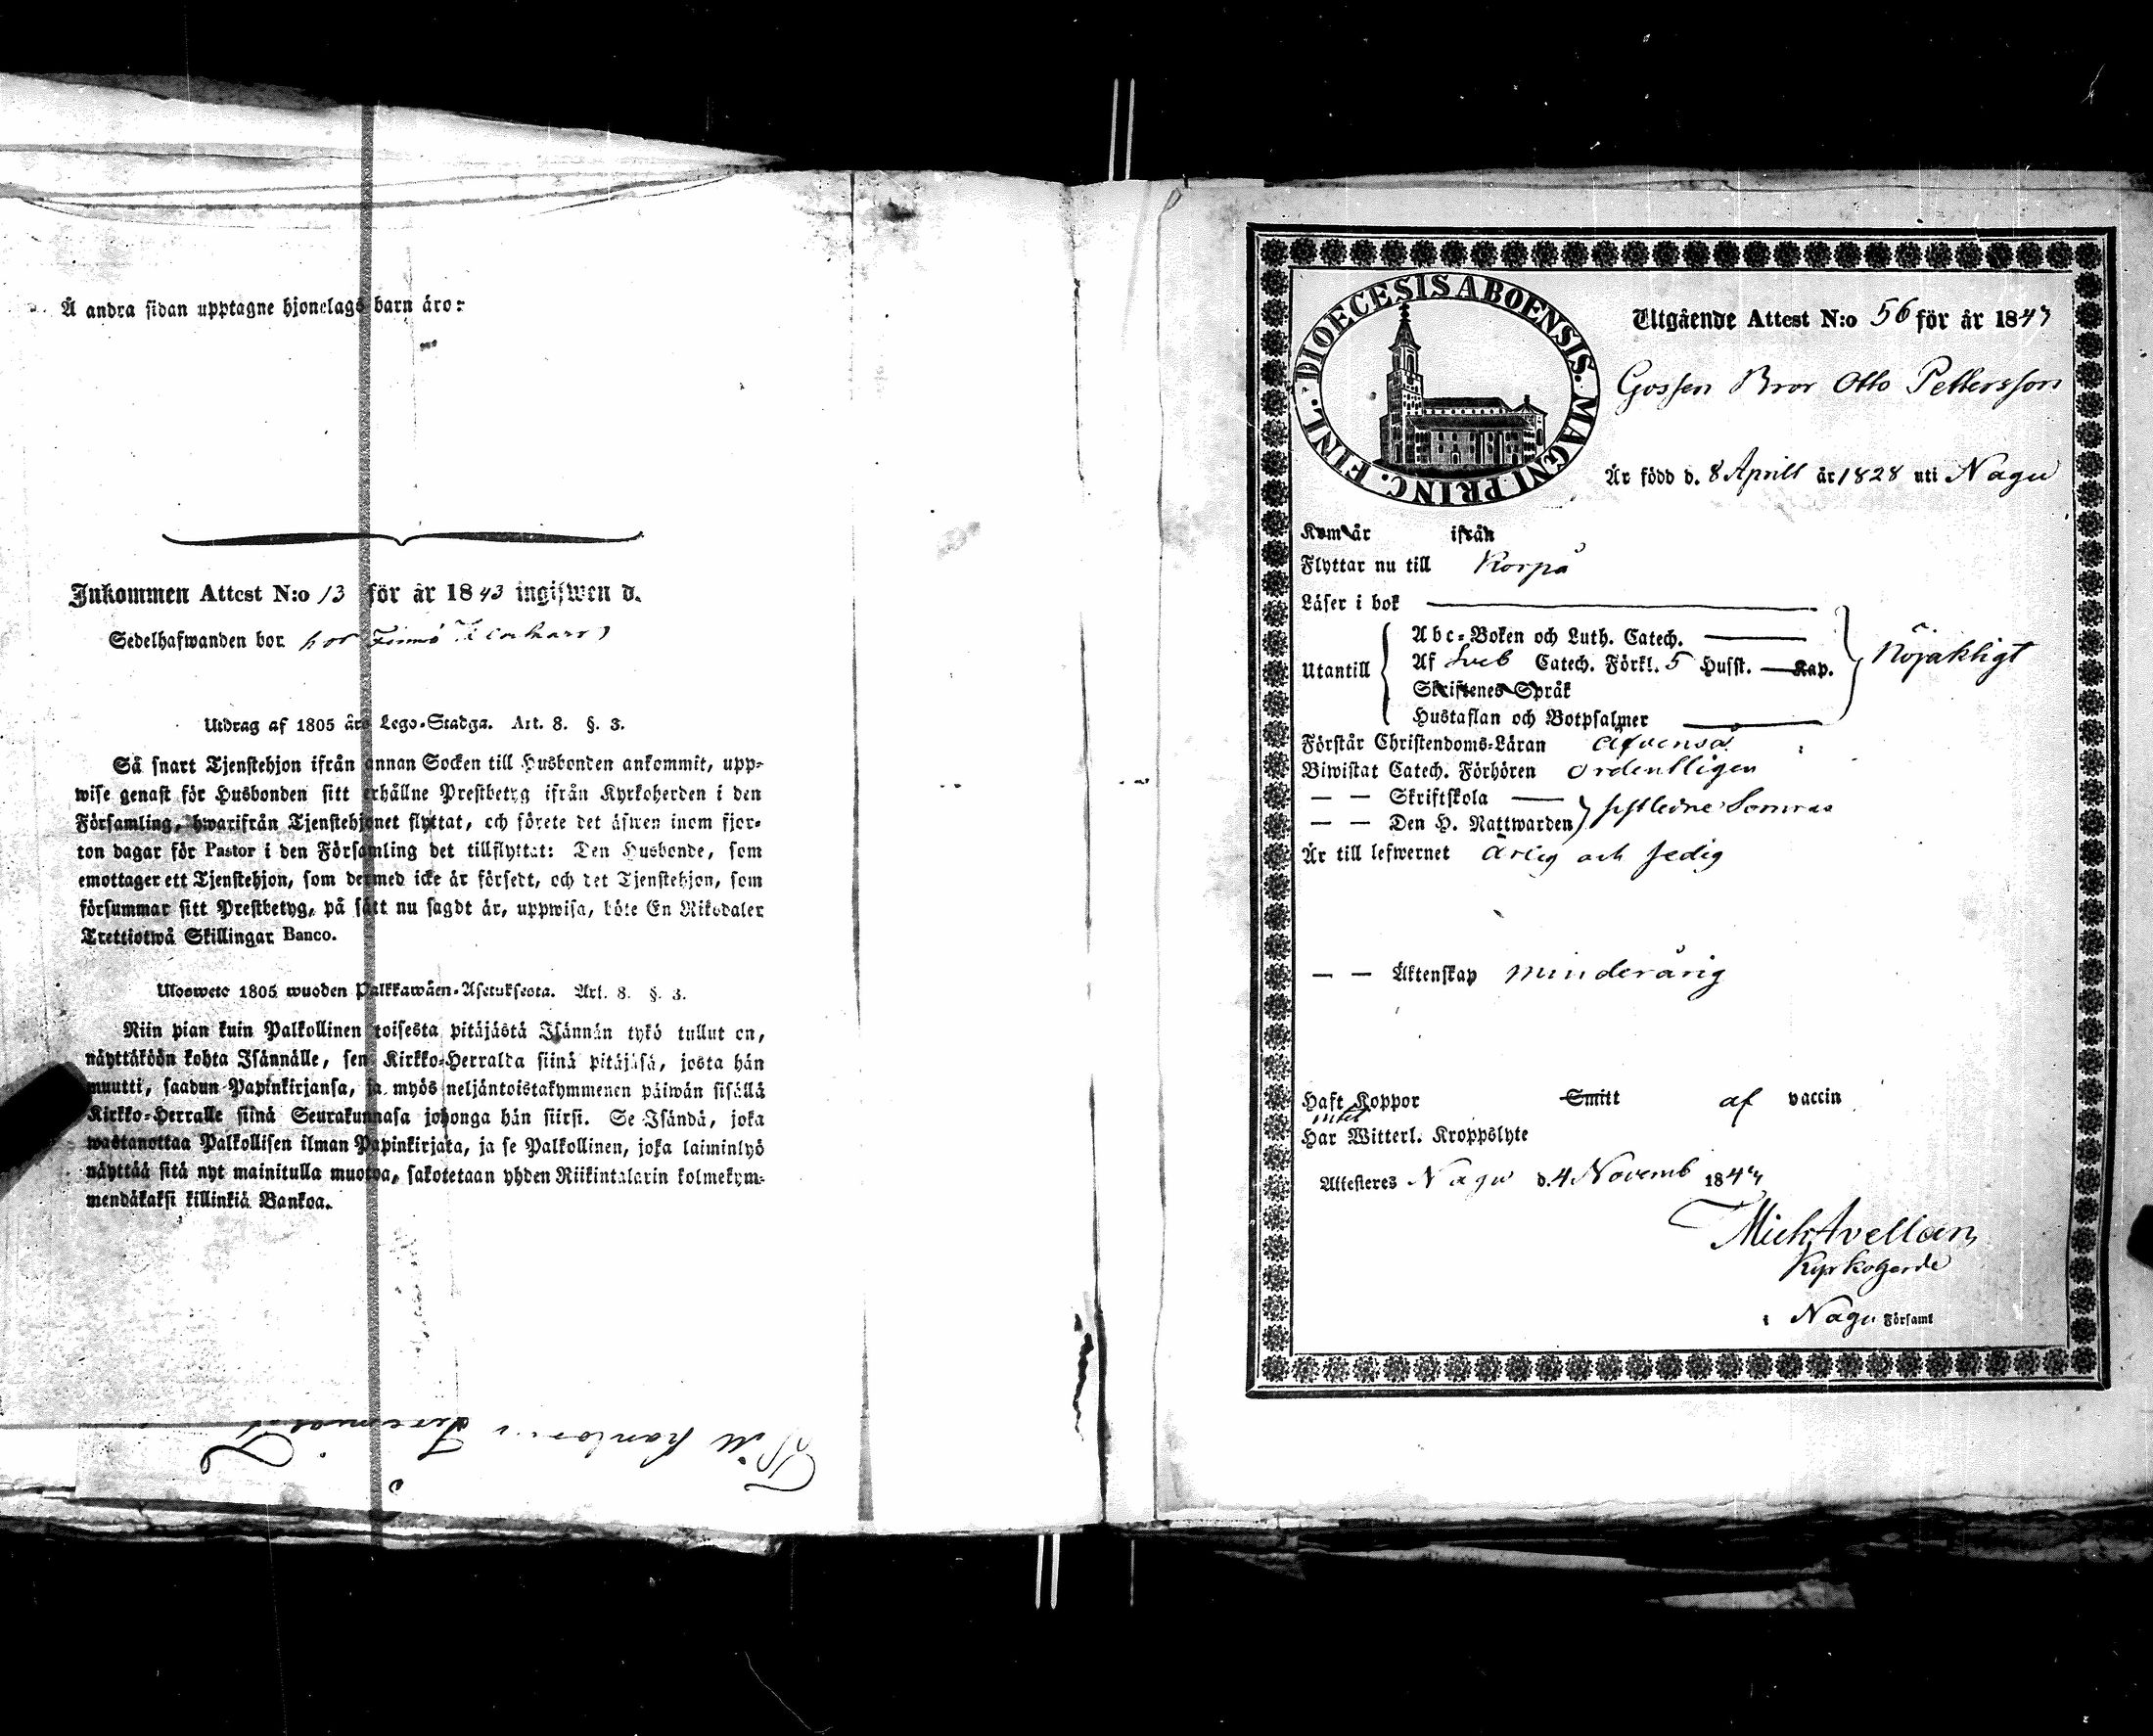 Å andra sidan upptagne hjonelags barn äro:
Inkommen Attest N:o 13 för år 1843 ingifwen d.
Sedelhafwanden bor hos Finnö
Utdrag af 1805 års Lego-Stadga. Art. 8. §. 3.
Så snart Tjenstehjon ifrån annan Socken till Husbonden ankommit, upp-
wise genast för Husbonden sitt erhållne Prestbetyg ifrån Kyrkoherden i den
Församling, hwarifrån Tjenstehjonet flyttat, och förete det äfwen inom fjor-
ton dagar för Pastor i den Församling det tillflyttat: Den Husbonde, som
emottager ett Tjenstehjon, som dermed icke är försedt, och det Tjenstehjon, som
försummar sitt Prestbetyg, på sätt nu sagdt är, uppwisa, böte En Riksdaler
Trettiotwå Skillingar Banco.
Ulosweto 1805 wuoden Palkkawäen-Asetuksesta. Art. 8. §. 3.
Niin pian kuin Palkollinen toisesta pitäjästä Isännän tykö tullut on,
näyttäköön kohta Isännälle, sen Kirkko-Herralda siinä pitäjäsä, josta hän
muutti, saadun Papinkirjansa, ja myös neljäntoistakymmenen päiwän sisällä
Kirkko-Herralle siinä Seurakunnasa johonga hän siirsi. Se Isändä, joka
wastanottaa Palkollisen ilman Papinkirjata, ja se Palkollinen, joka laiminlyö
näyttää sitä nyt mainitulla muotoa, sakotetaan yhden Riikintalarin kolmekym-
mendäkaksi killinkiä Bankoa.
Till
DIOECESIS ABOENSIS. MAGNI PRINC. FINL.
Utgående Attest N:o 56 för år 1843
Gossen Bror Otto Pettersson
Är född d. 8 Aprill år 1828 uti Nagu
Kom år ifrån
Flyttar nu till Korpå
Läser i bok
Abc-Boken och Luth. Catech.
Utantill Af Sveb Catech. Förkl. 5 Husst. Kap. Nöjaktligt
Skriftenes Språk
Hustaflan och Botpsalmer
Förstår Christendoms-Läran äfvenså
Biwistat Catech. Förhören ordentligen
— — Skriftskola
— — Den H. Nattwarden sistledne Somras
Är till lefwernet ärlig och sedig
— — Äktenskap minderårig
Haft Koppor Smitt af vaccin
intet
Har Witterl. Kroppslyte
Attesteres Nagu d. 4 Novemb 1843
Mich Avellan
Kyrkoherde
i Nagu Församl